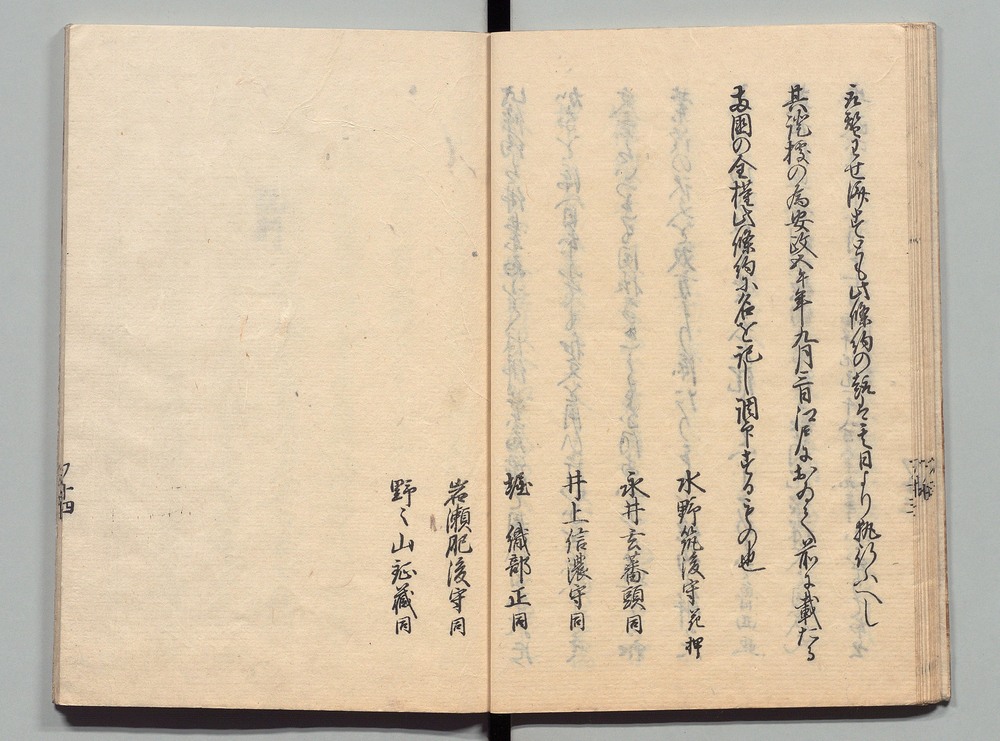 せ済すとも此條約の趣は其日より執行ふへし
其證據の為安政五午年九月三日江戸におゐて前に載たる
両國の全權此條約に名を記し調印するもの也
水野筑後守花押
永井玄蕃頭同
井上信濃守同
堀織部正同
岩瀬肥後守同
野々山鉦藏同
十四